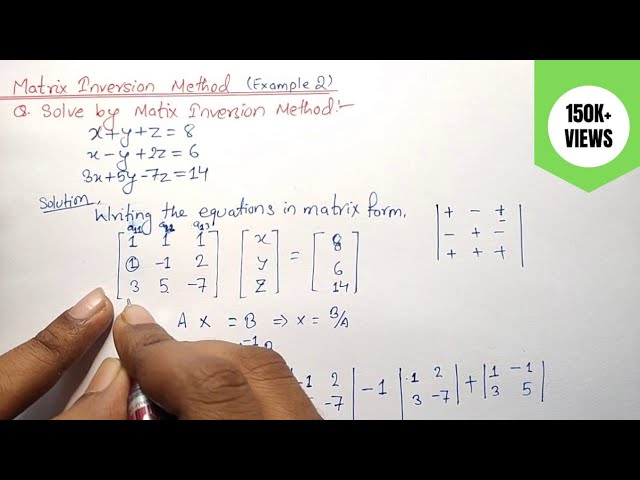 Matrix Inversion Method (Example 2)
Q. Solve by Matix Inversion Method:-
x+y+z=8
x-y+2z=6
3x+5y-7z=14
Solution,
Writing the equations in matrix form,
a11 a12 a13
1 1 1 x 8
1 -1 2 y = 6
3 5 -7 z 14
A X = B ⇒ x = B/A
-1
-1 2 -1 1 2 + 1 -1
-7 3 -7 3 5
+ - +
- + -
+ + +
150K+
VIEWS